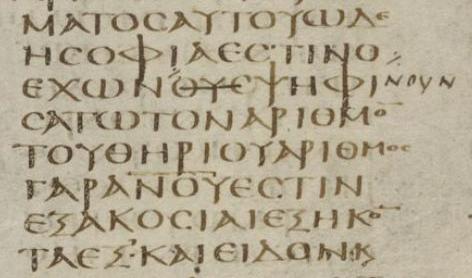 ΜΑΤΟϹΑΥΤΟΥΩΔΕ
ΗϹΟΦΙΑΕϹΤΙΝΟ
ΕΧΩΝΟΥϹΨΗΦΙ ΝΟΥΝ
ϹΑΤΩΤΟΝΑΡΙΘΜΟ̅
ΤΟΥΘΗΡΙΟΥΑΡΙΘΜΟϹ
ΓΑΡΑ̅Ν̅Ο̅Υ̅ΕϹΤΙΝ
ΕΞΑΚΟϹΙΑΙΕΞΗΚΟ̅
ΤΑΕΞ·ΚΑΙΕΙΔΟΝ·Κ